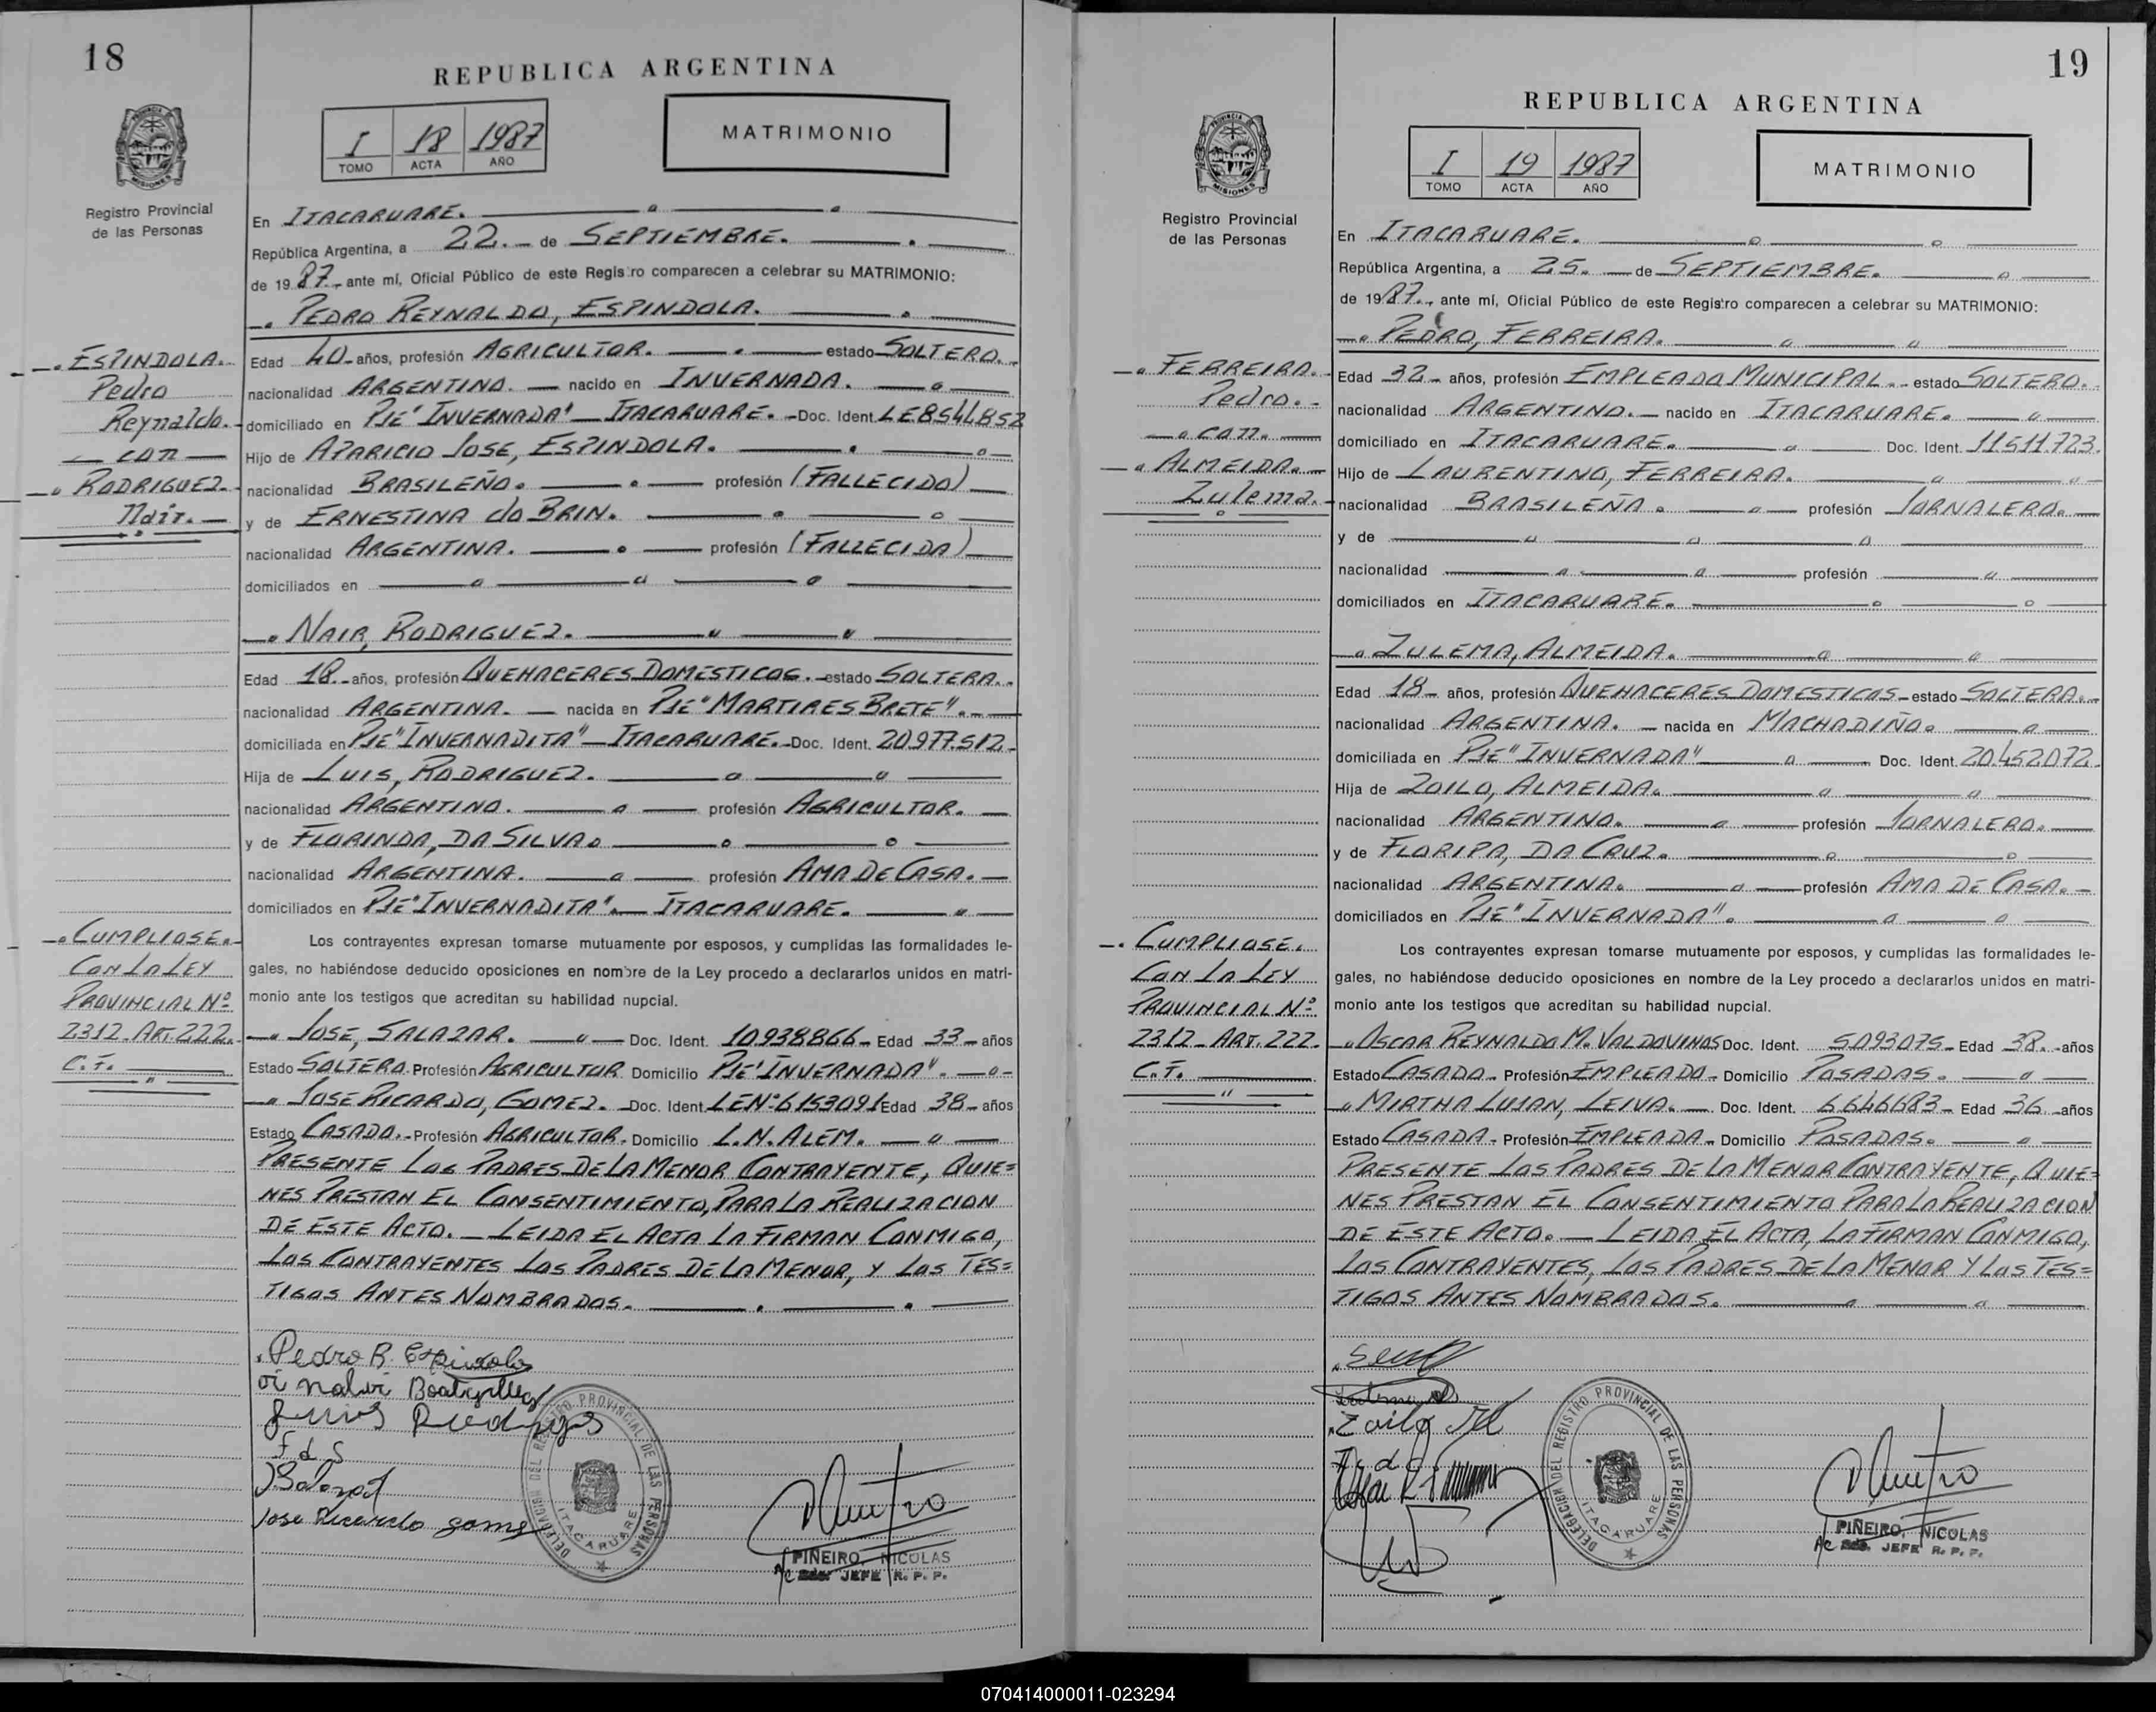 18
REPUBLICA ARGENTINA
PROVINCIA DE MISIONES
Registro Provincial
de las Personas
I 18 1987
TOMO ACTA AÑO
MATRIMONIO
En ITACARUARE.
República Argentina, a 22.- de SEPTIEMBRE.
de 1987.- ante mí, Oficial Público de este Registro comparecen a celebrar su MATRIMONIO:
PEDRO REYNALDO, ESPINDOLA.
ESPINDOLA.
Pedro
Reynaldo.-
con
RODRIGUEZ.-
Nair.-
Edad 40- años, profesión AGRICULTOR. estado SOLTERO.-
nacionalidad ARGENTINO. nacido en INVERNADA.
domiciliado en PJE"INVERNADA"-ITACARUARE.-Doc. Ident. LE8541852
Hijo de APARICIO JOSE, ESPINDOLA.
nacionalidad BRASILEÑO. profesión (FALLECIDO)
y de ERNESTINA do BRIN.
nacionalidad ARGENTINA. profesión (FALLECIDA)
domiciliados en
NAIR, RODRIGUEZ.
Edad 18.- años, profesión QUEHACERES DOMESTICOS.- estado SOLTERA.-
nacionalidad ARGENTINA. nacida en PJE"MARTIRES BRETE".-
domiciliada en PJE"INVERNADITA"-ITACARUARE.-Doc. Ident. 20.977.512.-
Hija de LUIS, RODRIGUEZ.
nacionalidad ARGENTINO. profesión AGRICULTOR.
y de FLORINDA, DA SILVA.
nacionalidad ARGENTINA. profesión AMA DE CASA.
domiciliados en PJE"INVERNADITA".- ITACARUARE.
CUMPLIOSE.-
CON LA LEY
PROVINCIAL Nº
2312.ART.222.
C.F.
Los contrayentes expresan tomarse mutuamente por esposos, y cumplidas las formalidades le-
gales, no habiéndose deducido oposiciones en nombre de la Ley procedo a declararlos unidos en matri-
monio ante los testigos que acreditan su habilidad nupcial.
JOSE, SALAZAR. Doc. Ident. 10938866- Edad 33- años
Estado SOLTERO. Profesión AGRICULTOR Domicilio PJE"INVERNADA".
JOSE RICARDO, GOMEZ. Doc. Ident. LENº6153091 Edad 38- años
Estado CASADO.- Profesión AGRICULTOR. Domicilio L.N. ALEM.
PRESENTE LOS PADRES DE LA MENOR CONTRAYENTE, QUIE=
NES PRESTAN EL CONSENTIMIENTO, PARA LA REALIZACION
DE ESTE ACTO.- LEIDA EL ACTA LA FIRMAN CONMIGO,
LOS CONTRAYENTES LOS PADRES DE LA MENOR, Y LOS TES=
TIGOS ANTES NOMBRADOS.
Pedro R. Espindola
F d S
Jose Ricardo Gomez
DELEGACION DEL REGISTRO PROVINCIAL DE LAS PERSONAS
ITACARUARE
PIÑEIRO, NICOLAS
JEFE R. P. P.
19
REPUBLICA ARGENTINA
PROVINCIA DE MISIONES
Registro Provincial
de las Personas
I 19 1987
TOMO ACTA AÑO
MATRIMONIO
En ITACARUARE.
República Argentina, a 25. de SEPTIEMBRE.
de 1987.- ante mí, Oficial Público de este Registro comparecen a celebrar su MATRIMONIO:
PEDRO, FERREIRA.
FERREIRA.
Pedro.-
con.
ALMEIDA.
Zulema.-
Edad 32- años, profesión EMPLEADO MUNICIPAL.- estado SOLTERO.
nacionalidad ARGENTINO.- nacido en ITACARUARE.
domiciliado en ITACARUARE. Doc. Ident. 11.511.723.
Hijo de LAURENTINO, FERREIRA.
nacionalidad BRASILEÑA. profesión JORNALERO.
y de
nacionalidad profesión
domiciliados en ITACARUARE.
ZULEMA, ALMEIDA.
Edad 18- años, profesión QUEHACERES DOMESTICOS- estado SOLTERA.-
nacionalidad ARGENTINA. nacida en MACHADIÑO.
domiciliada en PJE"INVERNADA" Doc. Ident. 20.452.072.
Hija de ZOILO, ALMEIDA.
nacionalidad ARGENTINO. profesión JORNALERO.
y de FLORIPA, DA CRUZ.
nacionalidad ARGENTINA. profesión AMA DE CASA.-
domiciliados en PJE"INVERNADA".
CUMPLIOSE.
CON LA LEY
PROVINCIAL Nº
2312-ART.222.
C.F.
Los contrayentes expresan tomarse mutuamente por esposos, y cumplidas las formalidades le-
gales, no habiéndose deducido oposiciones en nombre de la Ley procedo a declararlos unidos en matri-
monio ante los testigos que acreditan su habilidad nupcial.
OSCAR REYNALDO M. VALDOVINOS Doc. Ident. 5093075- Edad 38.- años
Estado CASADO- Profesión EMPLEADO- Domicilio POSADAS.
MIRTHA LUJAN, LEIVA. Doc. Ident. 6646683- Edad 36 años
Estado CASADA- Profesión EMPLEADA- Domicilio POSADAS.
PRESENTE LOS PADRES DE LA MENOR CONTRAYENTE, QUIE=
NES PRESTAN EL CONSENTIMIENTO PARA LA REALIZACION
DE ESTE ACTO.- LEIDA EL ACTA, LA FIRMAN CONMIGO,
LOS CONTRAYENTES, LOS PADRES DE LA MENOR Y LOS TES=
TIGOS ANTES NOMBRADOS.
DELEGACION DEL REGISTRO PROVINCIAL DE LAS PERSONAS
ITACARUARE
PIÑEIRO, NICOLAS
JEFE R. P. P.
070414000011-023294